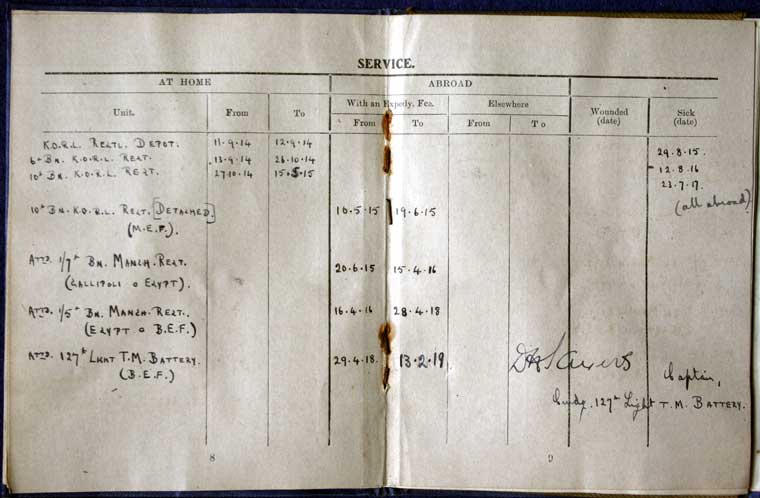 SERVICE.
AT HOME ABROAD
With an Expedy. Fce. Elsewhere
Unit. From To From To From To Wounded (date) Sick (date)
K.O.R.L. REGTL. DEPOT. 11.9.14 12.9.14
6th BN. K.O.R.L. REGT. 13.9.14 26.10.14 29.8.15.
10th BN. K.O.R.L. REGT. 27.10.14 15.5.15 12.8.16
23.7.17.
10th BN. K.O.R.L. REGT. [DETACHED.] 10.5.15 19.6.15 (all abroad)
(M.E.F.).
ATTD. 1/7th BN. MANCH. REGT. 20.6.15 15.4.16
(GALLIPOLI & EGYPT).
ATTD. 1/5th BN. MANCH. REGT. 16.4.16 28.4.18
(EGYPT & B.E.F.)
ATTD. 127th LIGHT T.M. BATTERY. 29.4.18. 13.2.19
(B.E.F.)
Captain,
Comdg. 127th Light T.M. BATTERY.
8 9